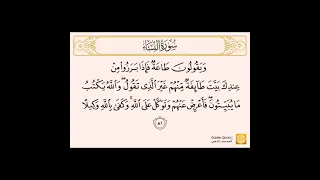 سُورَةُ النِّسَاءِ
وَيَقُولُونَ طَاعَةٌ فَإِذَا بَرَزُوا۟ مِنْ
عِندِكَ بَيَّتَ طَآئِفَةٌ مِّنْهُمْ غَيْرَ ٱلَّذِى تَقُولُ ۖ وَٱللَّهُ يَكْتُبُ
مَا يُبَيِّتُونَ ۖ فَأَعْرِضْ عَنْهُمْ وَتَوَكَّلْ عَلَى ٱللَّهِ ۚ وَكَفَىٰ بِٱللَّهِ وَكِيلًا
٨١
Golden Quran
المصحف الذهبي